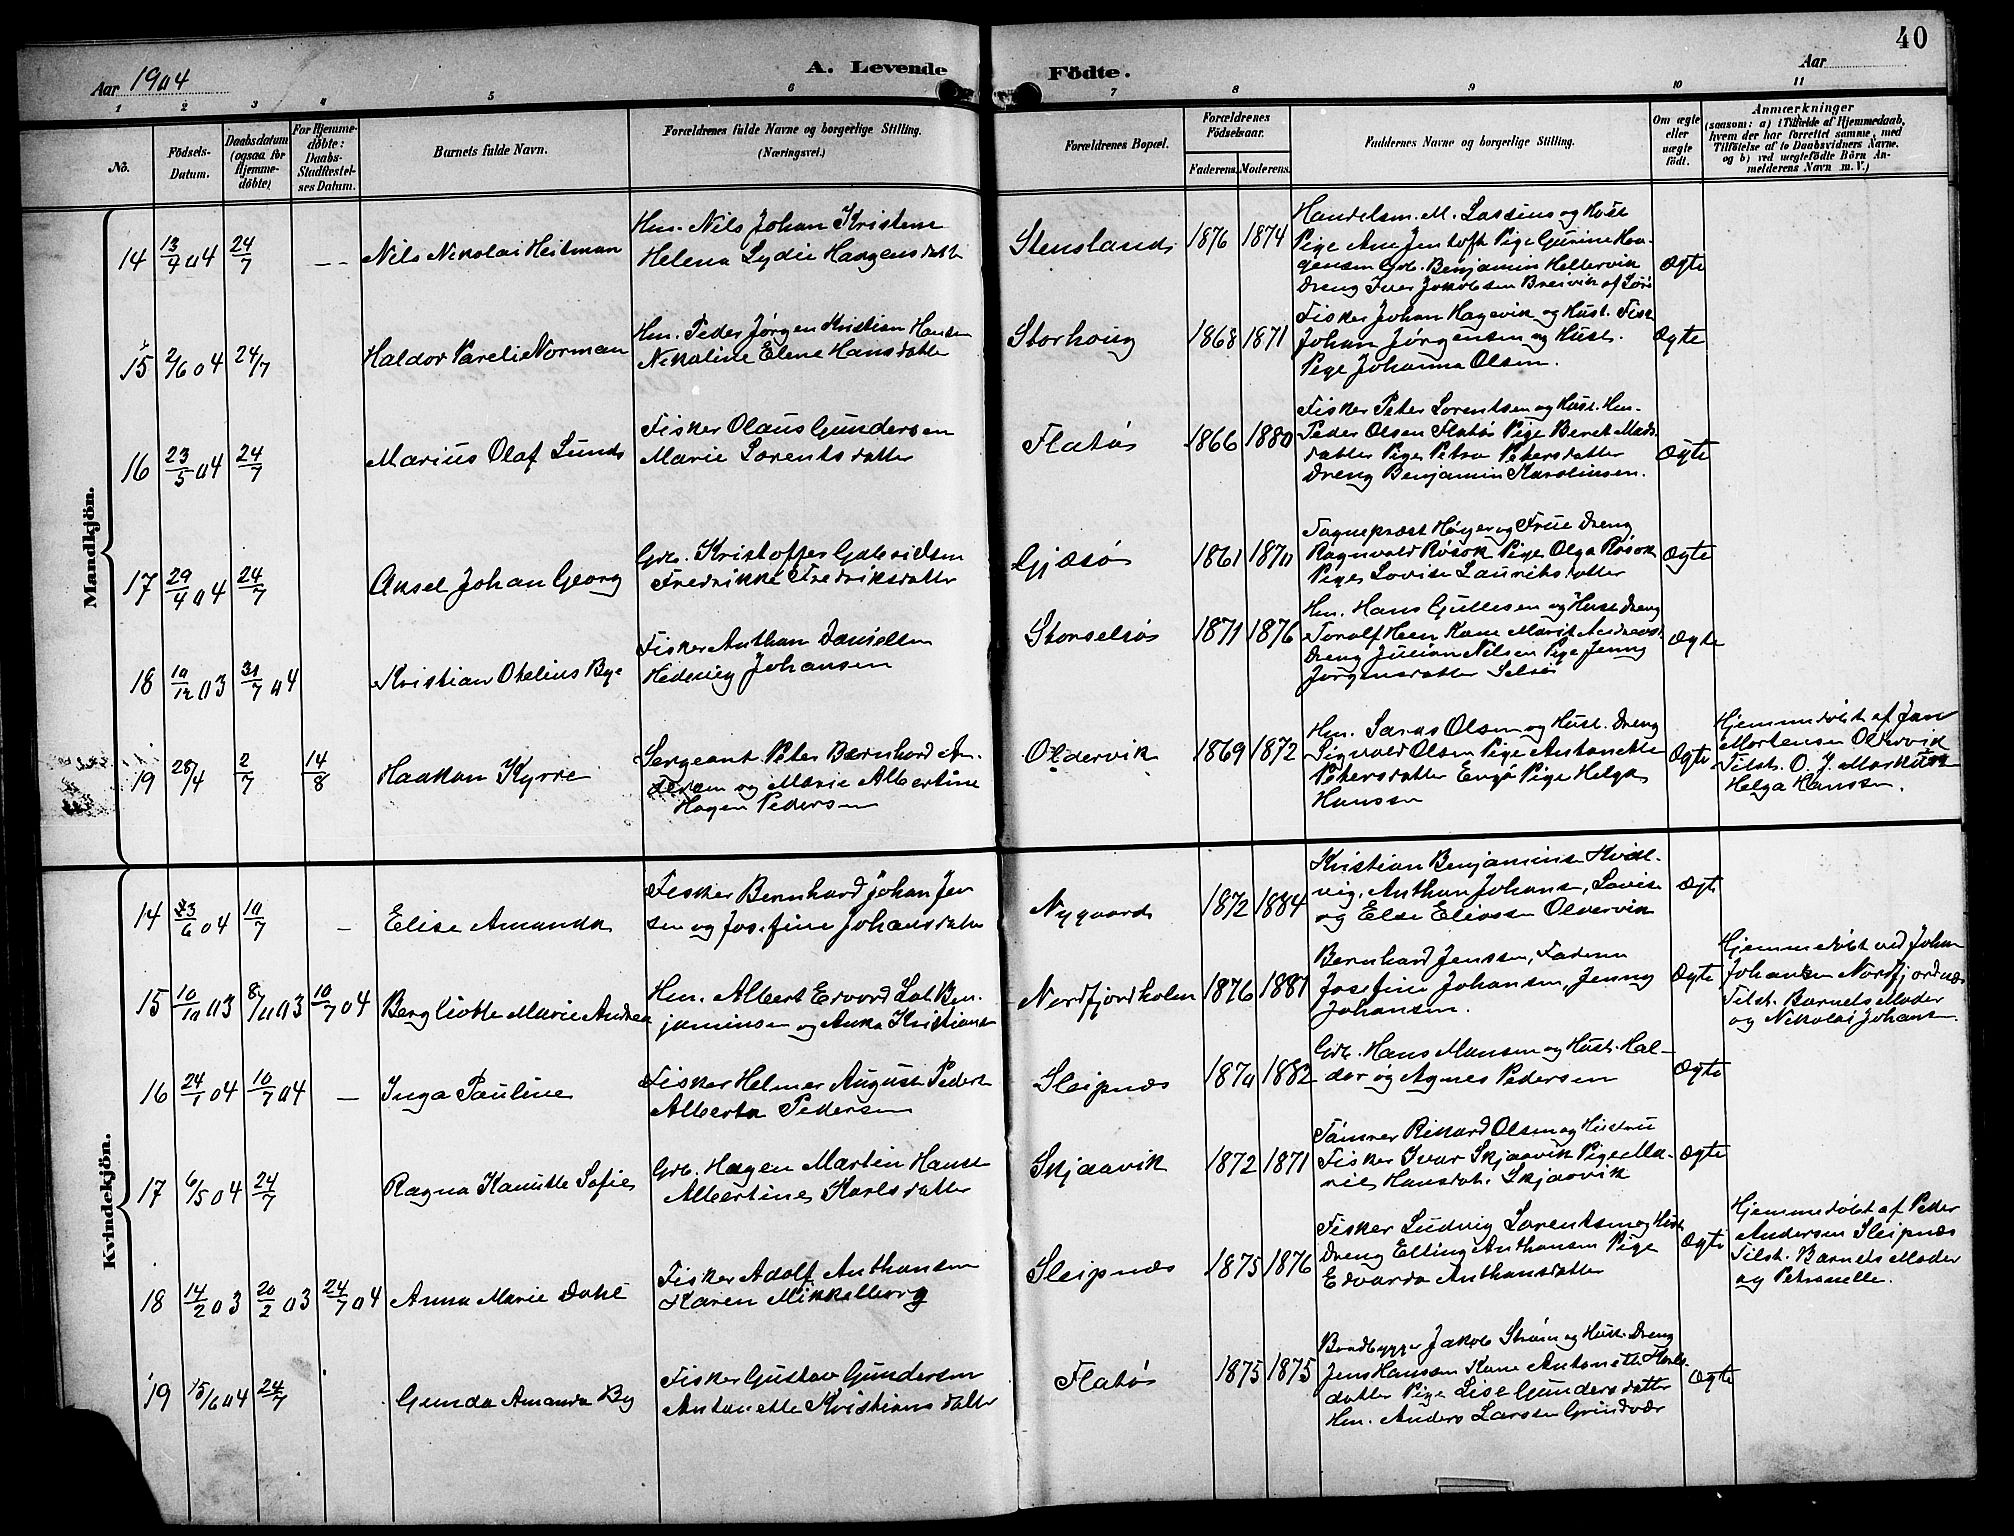 40
Aar 1904
A. Levende
Födte.
Aar
1 2 3 4 5 6 7 8 9 10 11
No.
Födsels-
Datum.
Daabsdatum
(ogsaa for
Hjemme-
døbte)
For Hjemme-
döbte:
Daabs-
Stadfæstel-
ses Datum.
Barnets fulde Navn.
Forældrenes fulde Navne og borgerlige Stilling.
(Næringsvei.)
Forældrenes Bopæl.
Forældrenes
Födselsaar.
Faderens. Moderens.
Faddernes Navne og borgerlige Stilling.
Om ægte
eller
uægte
födt.
Anmærkninger
(saasom: a) i Tilfælde af Hjemmedaab,
hvem der har forrettet samme, med
Tilföielse af to Daabsvidners Navne.
og b) ved uægtefödte Börn An-
melderens Navn m. V.)
Mandkjön.
14 13/4 04 24/7 -- Nils Nikolai Heitman
Hm. Nils Johan Kristens
Helena Lydie Hagensdatt
Stensland 1876 1874
Handelsm. M. Lassius og Hust
Pige Ane Jentoft Pige Gurine Haa-
gensen Grb. Benjamin Hellervik
Dreng Iver Jakobsen Breivik af
Ægte
15 2/6 04 24/7 Haldor Parelie Norman
Hm. Peder Jørgen Kristian Hansen
Nikoline Elene Hansdatter
Storhoug 1868 1871
Fisker Johan Hagevik og Hust. Fisk
Johan Jørgensen og Hust.
Pige Johanna Olsen.
Ægte
16 23/5 04 24/7 Marius Olaf Lund
Fisker Olaus Gundersen
Marie Lorentsdatter
Flatøs 1866 1880
Fisker Peter Lorentsen og Hust. Hm.
Peder Olsen Flatøs Pige Beret Mads
datter Pige Petra Petersdatter
Dreng Benjamin Karolinsen.
Ægte
17 29/4 04 24/7 Aksel Johan Georg
Grb. Kristoffer Gabrielsen
Fredrikke Fredriksdatter
Gjæsø 1861 1870
Sognepræst Høyer og Frue Dreng
Ragnvald Røsok Pige Olga Røsok
Pige Lovise Lauritsdatter
Ægte
18 10/12 03 31/7 04 Kristian Otelius Bye
Fisker Anthon Danielsen
Hedevig Johansen
Storselsøs 1871 1876
Hm. Hans Gullesen og Hust Dreng
Toralf Kone Marit Andreas.
Dreng Julian Nilsen Pige Jenny
Jørgensdatter Selsø
Ægte
19 28/4 2/7 14/8 Haakon Kyrre
Sergeant Peter Bernhard
og Marie Albertine
Hagen Pedersen
Oldervik 1869 1872
Hm. Olsen og Hust. Dreng
Sigvald Olsen Pige Antonette
Petersdatter Engø Pige Helga
Hanssen
Ægte
Hjemmedøbt af Jan
Mortensen Oldervik
Tilst. O. J.
Helga Hanssen.
Kvindekjön.
14 23/6 04 10/7 - Elise Amanda
Fisker Bernhard Johan Jen
sen og Josefine Johansdatter
Nygaard 1872 1884
Kristian Benjamins
vig, Anthon Johans, Lovise
og Else Eliassen Oldervik
Ægt
15 10/10 03 8/11 03 10/7 04 Bergliotte Marie Andrea
Hm. Albert Edvard Lot Ben-
jaminsen og Anna Kristians
Nordfjordholm 1876 1881
Bernhard Jenssen, Faderen
Josefine Johansen, Jenny
Johansen.
Ægte
Hjemmedøbt ved Johan
Johansen Nordfjordnæs
Tilst. Barnets Moder
og Nikolai Johans.
16 24/1 04 10/7 04 - Inga Pauline
Fisker Helmer August Peders
Alberta Pedersen
Sleipnæs 1874 1882
Grb. Hans Monsen og Hust. Hal-
dor og Agnes Pedersen
Ægte
17 6/5 04 24/7 Ragna Kamille Sofie
Grb. Hagen Martin Hanse
Albertine Karlsdatter
Skjaavik 1872 1871
Tømrer Rikard Olsen og Hustru
Fisker Ivar Skjaavik Pige Ma-
rie Hansdat. Skjaavik
Ægte
18 14/2 03 20/2 03 24/7 04 Anna Marie Dahl
Fisker Adolf Anthonsen
Karen Mikkelborg
Sleipnæs 1875 1876
Fisker Ludvig Lorentsen og Hust
Dreng Elling Anthonsen Pige
Edvarda Anthonsdatter
Ægte
Hjemmedøbt af Peder
Andersen Sleipnæs
Tilst. Barnets Moder
og Petronelle.
19 15/6 04 24/7 Gunda Amanda By
Fisker Gustav Gundersen
Antonette Kristiansdatter
Flatøs 1875 1875
Baadbygger Jakob Strøm og Hust. Dreng
Jens Hanssen Kone Antonette Karls-
datter Pige Lise Gundersdatter
Hm. Anders Larsen Grindvær
Ægte